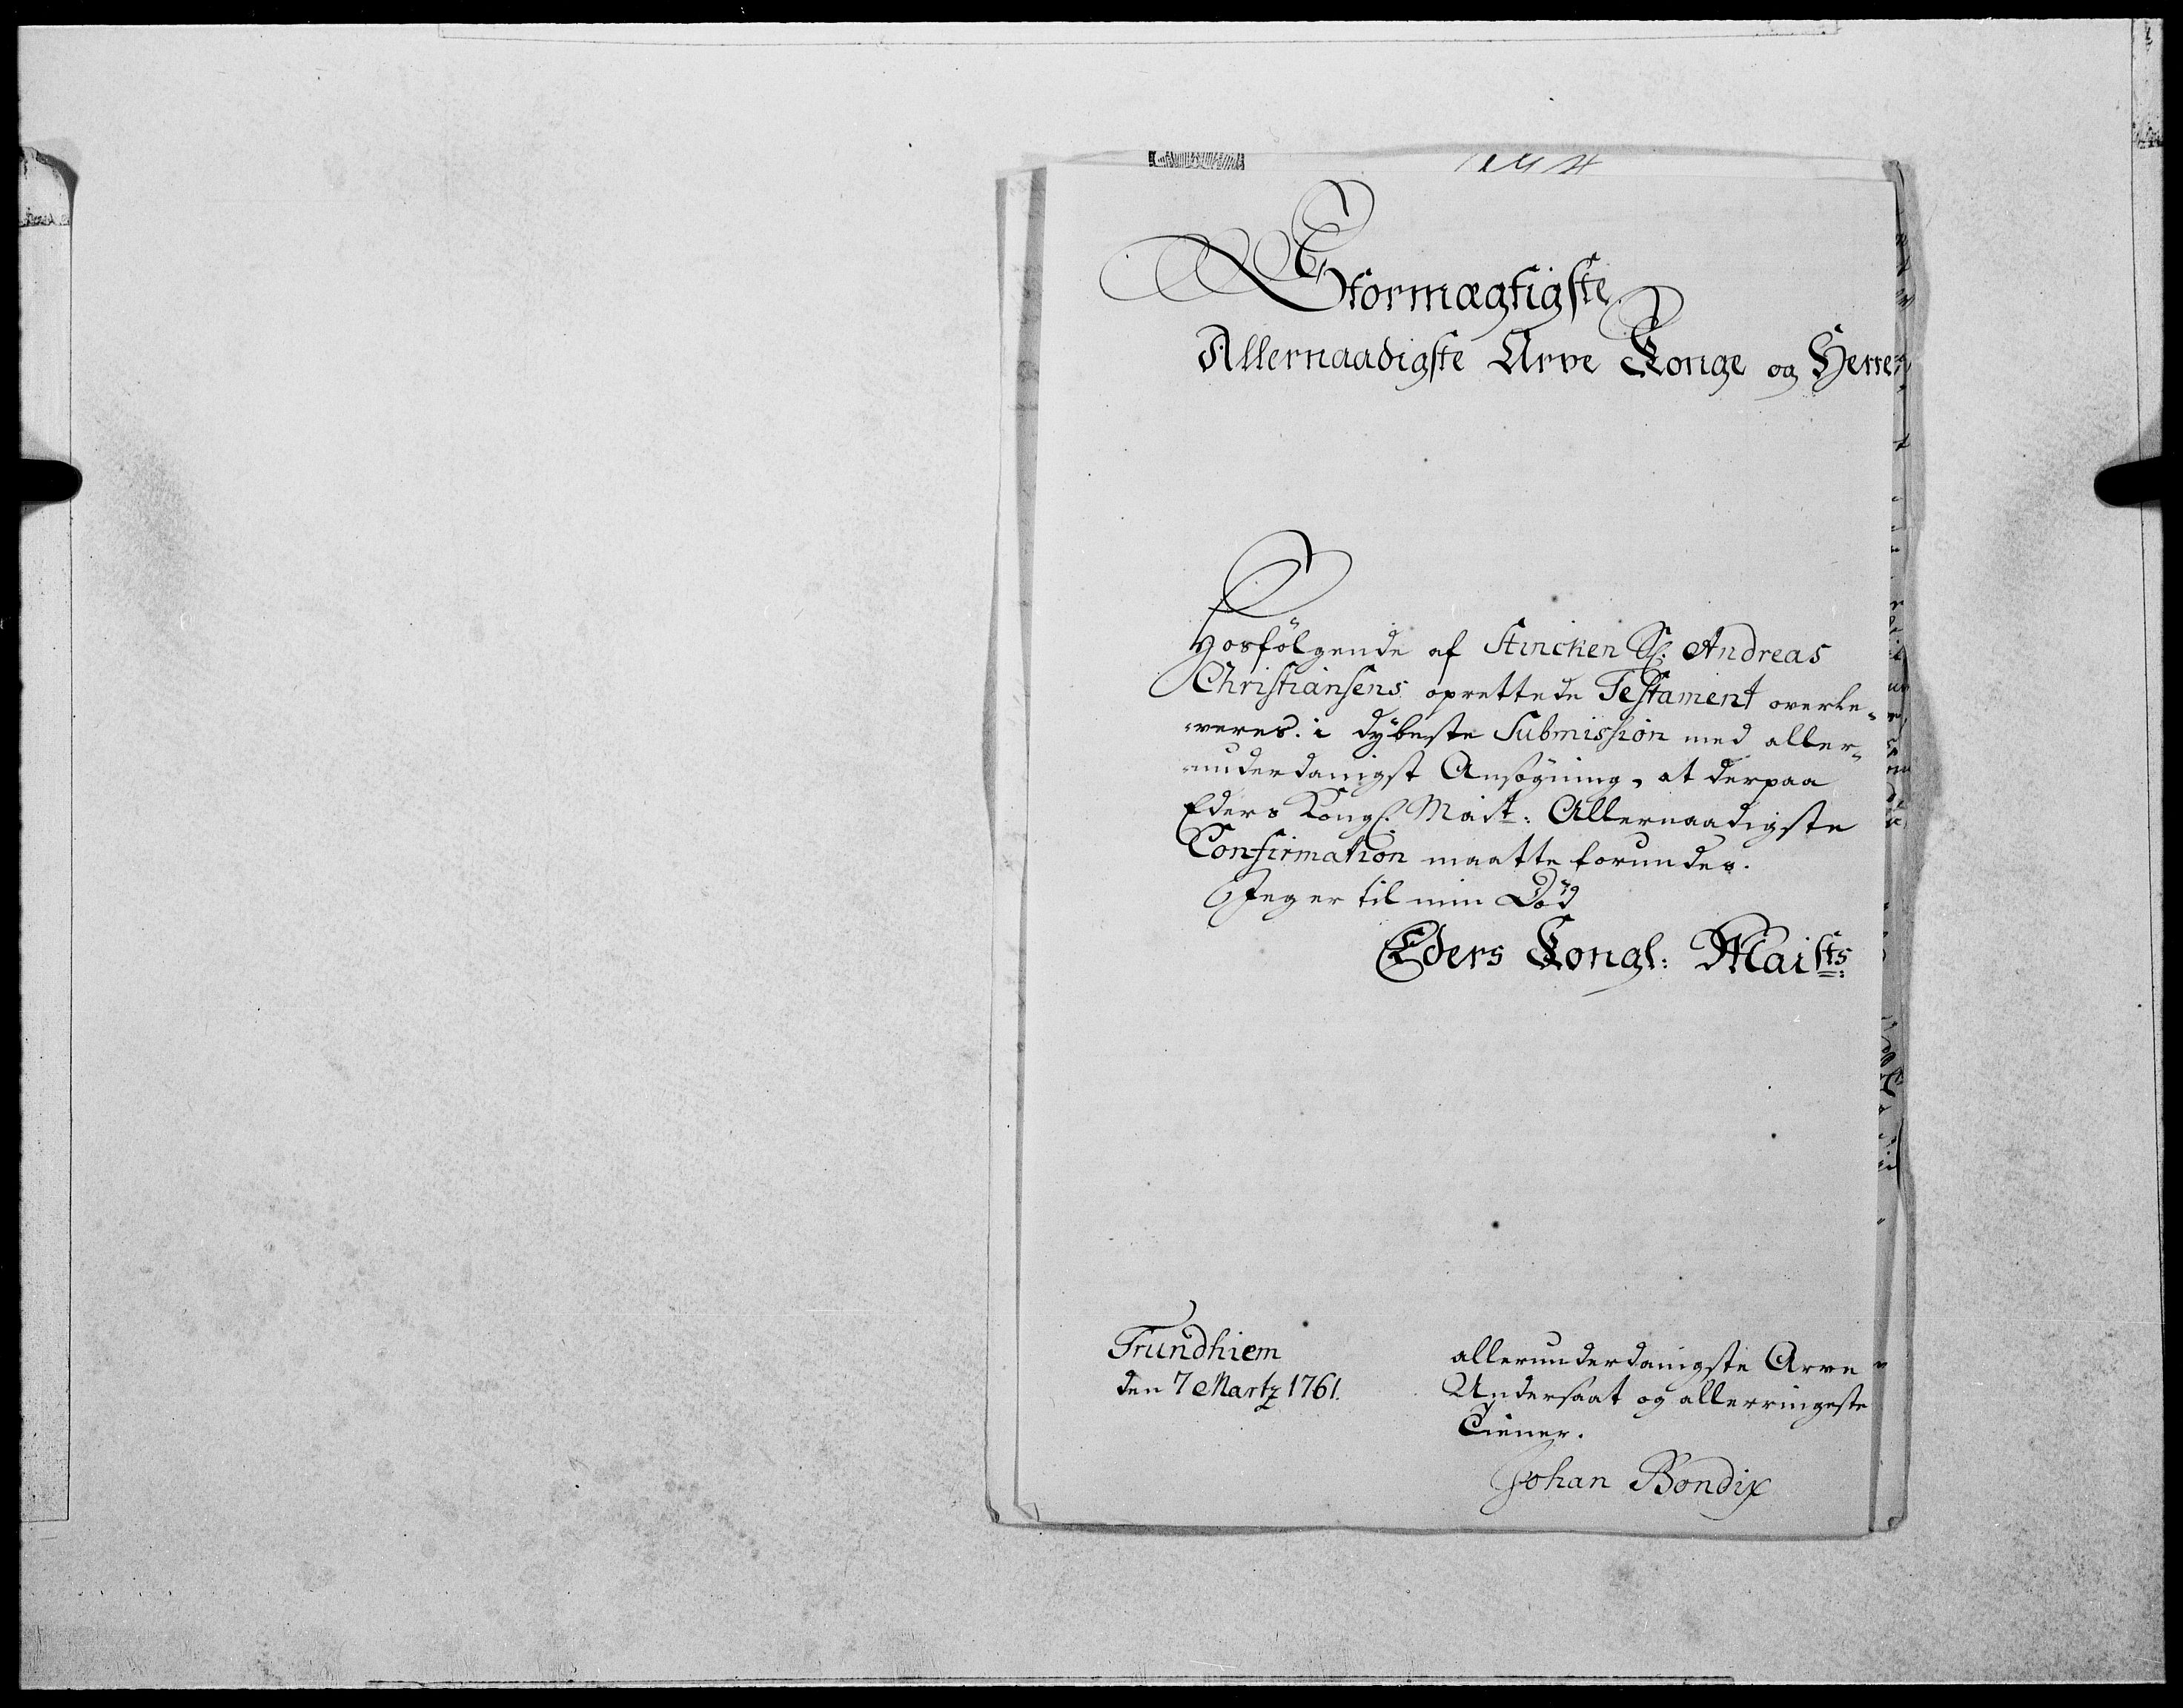 Stormægtigste
Allernaadigste Arve Konge og Herre
Hosfölgende af Stincken Sl: Andreas
Christiansens oprettede Testament overle-
veres i dÿbeste Submission med aller-
underdanigst Ansögning, at derpaa
Eders Kongl: Maist: Allernaadigste
Confirmation maatte forundes.
Jeg er til min Död
Eders Kongl: Maists:
Trundhiem
den 7 Martz 1761.
allerunderdanigste Arve
Undersaat og allerringeste
Tiener.
Johan Bondix